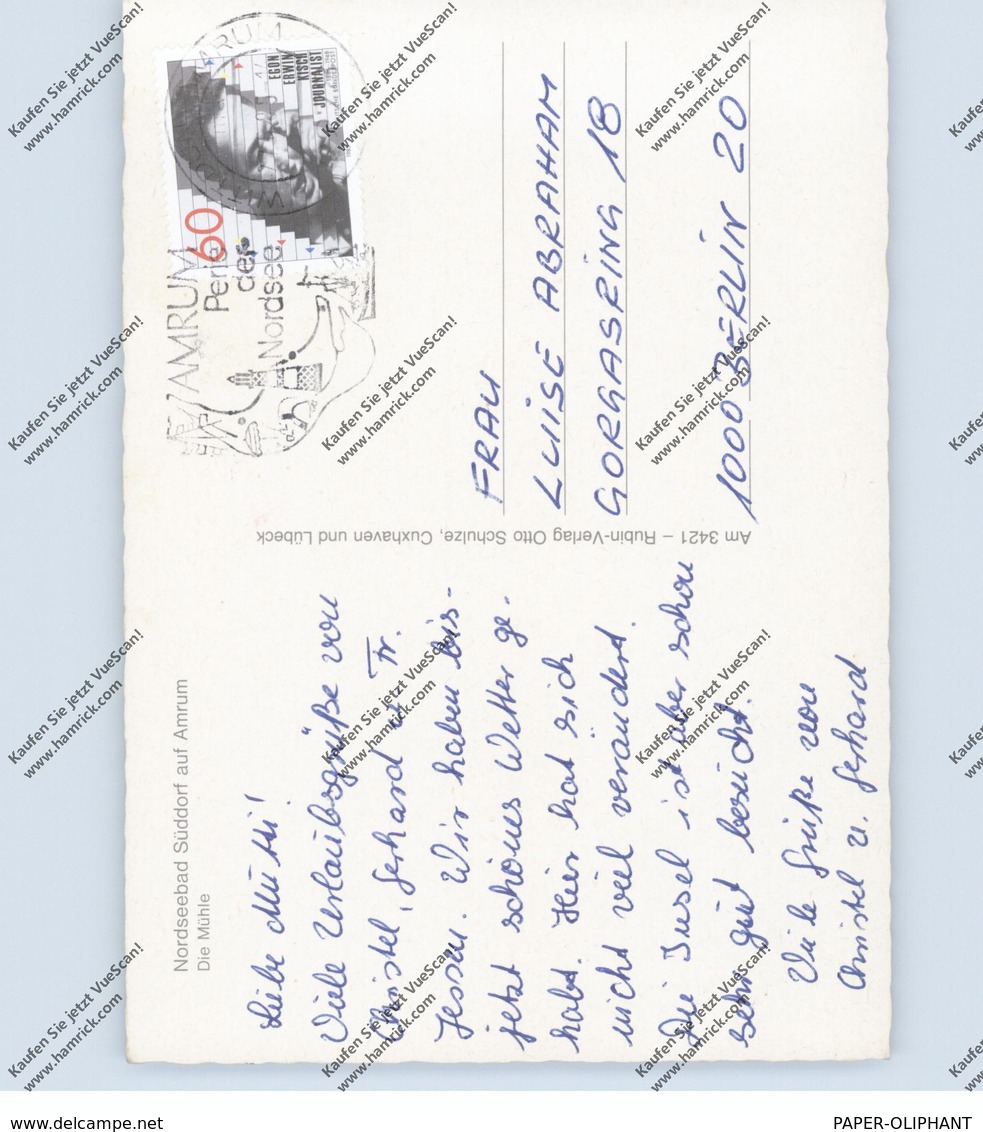 Nordseebad Süddorf auf Amrum
Die Mühle
Liebe Mutti!
Viele Urlaubsgrüße von
Christel, Gerhard u. Fr.
Jessen. Wir haben bis-
jetzt schönes Wetter ge-
habt. Hier hat sich
nicht viel verändert.
Die Insel ist aber schon
sehr gut besucht.
Viele Grüße von
Christel u. Gerhard
Am 3421 – Rubin-Verlag Otto Schulze, Cuxhaven und Lübeck
AMRUM
Perle
der
Nordsee
60
EGON
ERWIN
KISCH
JOURNALIST
AMRUM
FRAU
LUISE ABRAHAM
GORGASRING 18
1000 BERLIN 20
Kaufen Sie jetzt VueScan!
www.hamrick.com
www.delcampe.net
PAPER-OLIPHANT